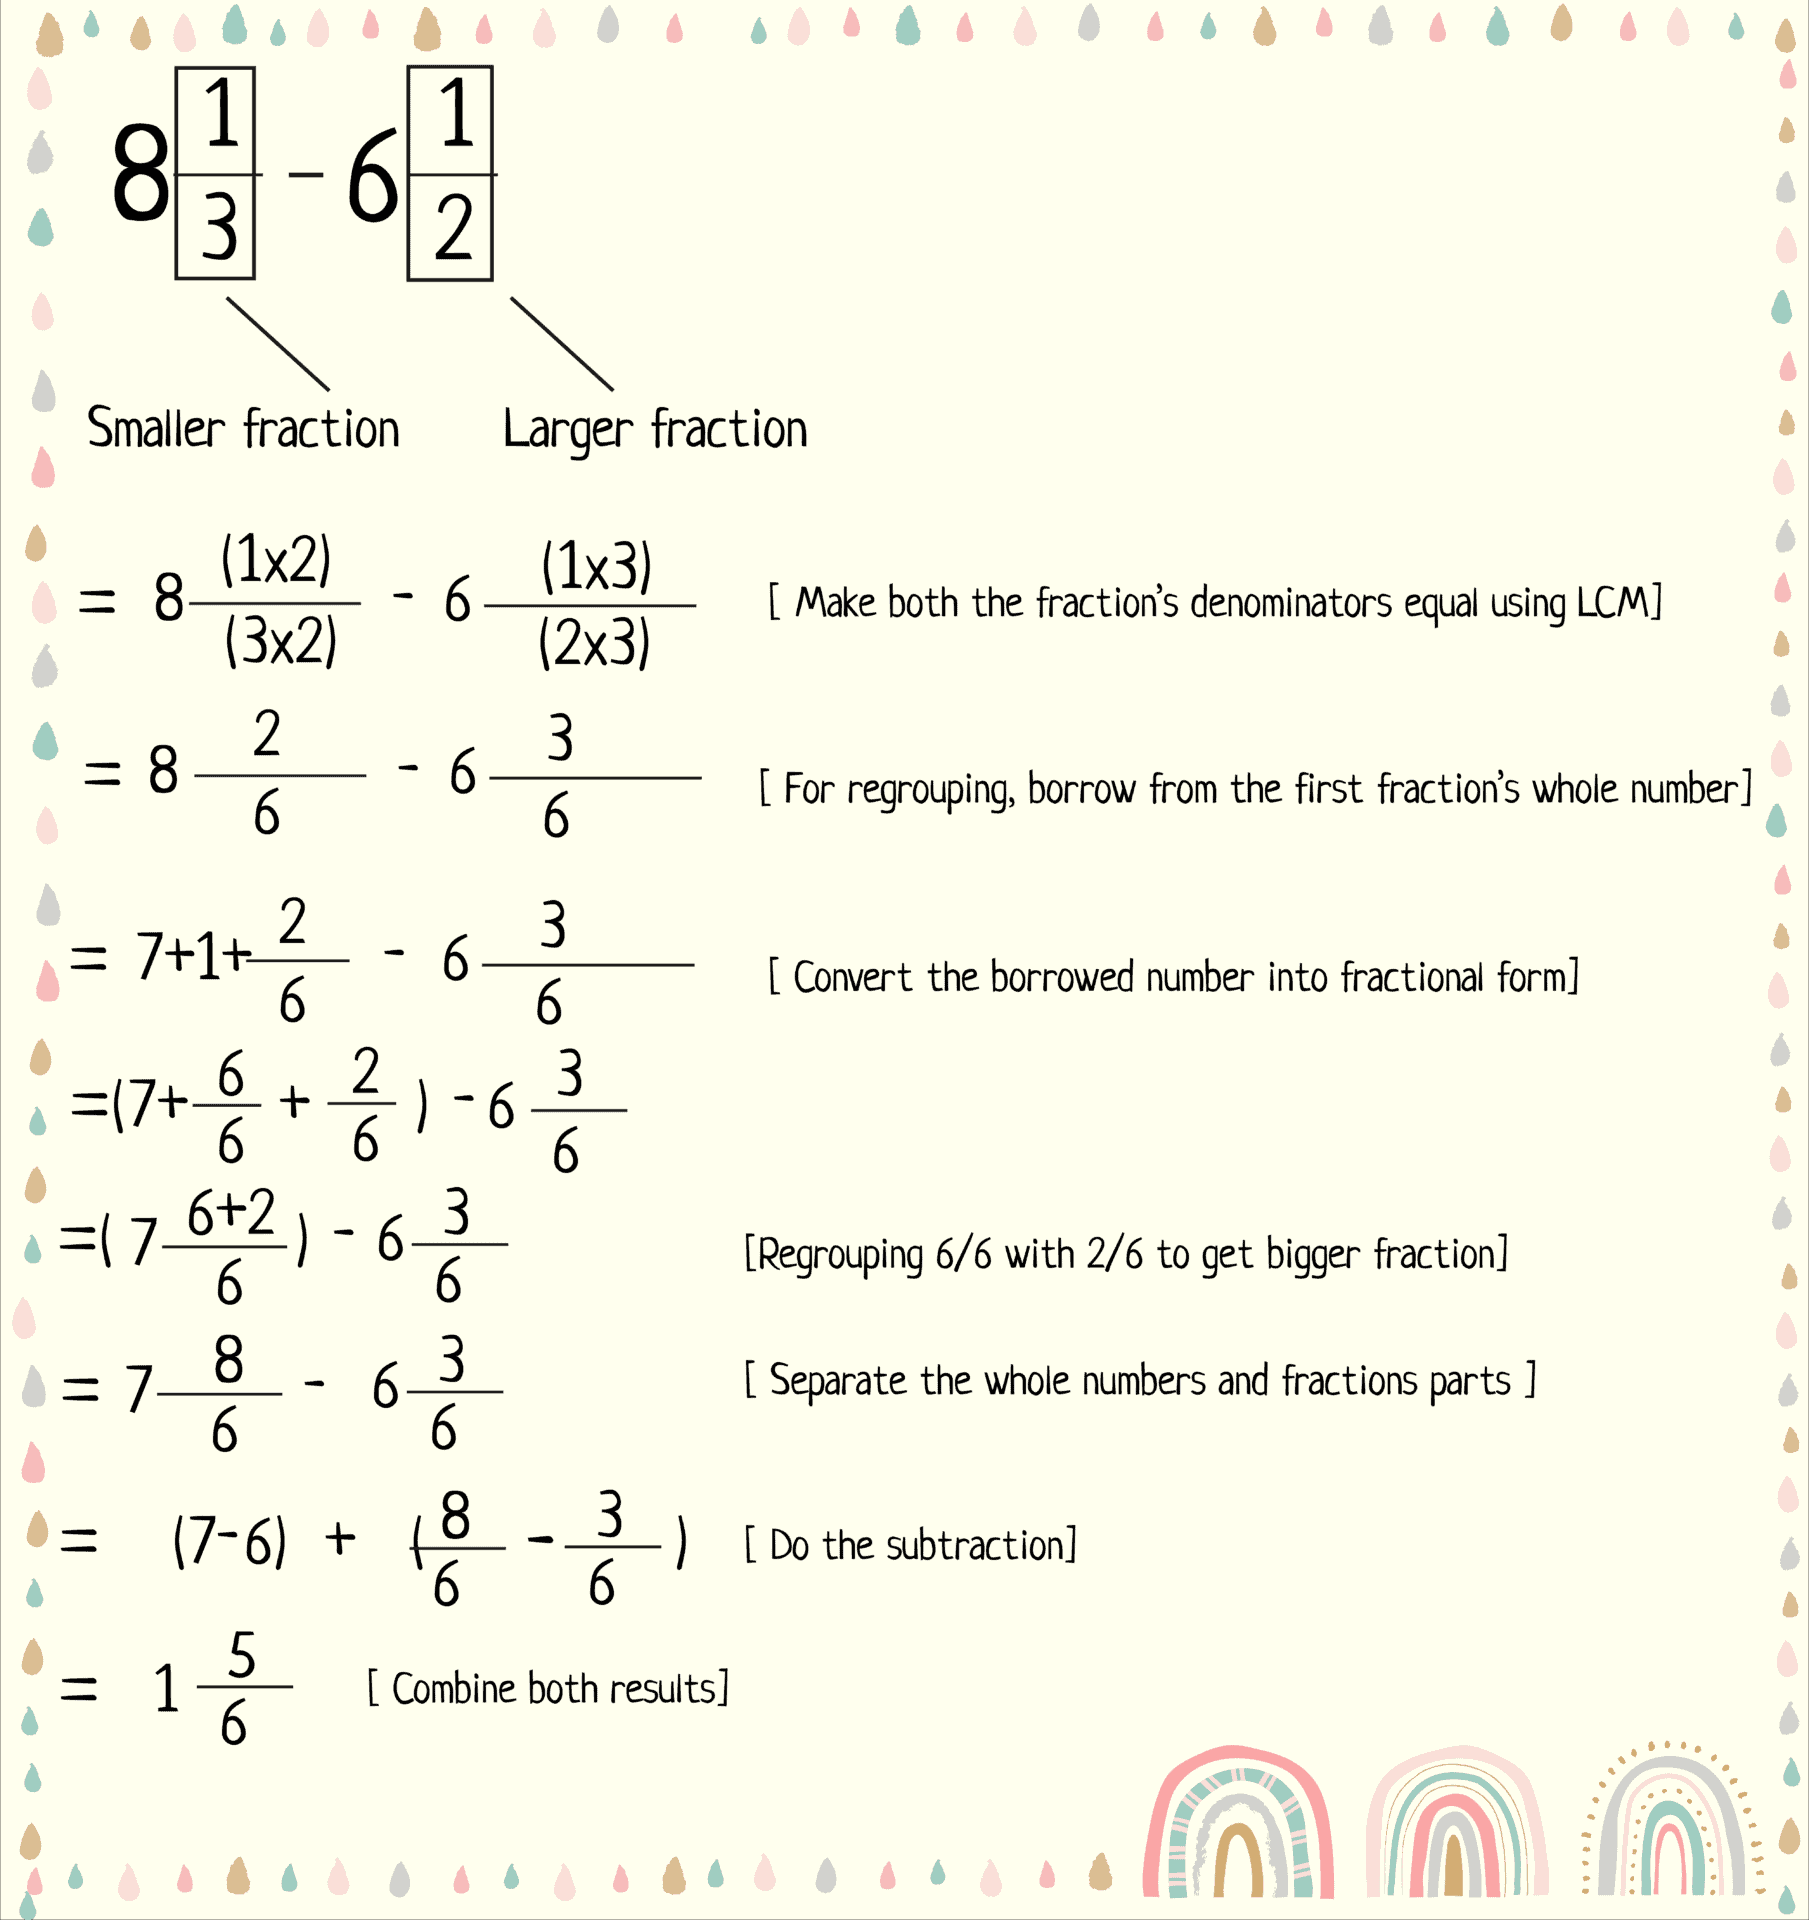 8 1/3 - 6 1/2
Smaller fraction Larger fraction
= 8 (1x2)/(3x2) - 6 (1x3)/(2x3) [ Make both the fraction's denominators equal using LCM]
= 8 2/6 - 6 3/6 [ For regrouping, borrow from the first fraction's whole number]
= 7+1+ 2/6 - 6 3/6 [ Convert the borrowed number into fractional form]
=(7+ 6/6 + 2/6 ) - 6 3/6
=( 7 6+2/6 ) - 6 3/6 [Regrouping 6/6 with 2/6 to get bigger fraction]
= 7 8/6 - 6 3/6 [ Separate the whole numbers and fractions parts ]
= (7-6) + ( 8/6 - 3/6 ) [ Do the subtraction]
= 1 5/6 [ Combine both results]